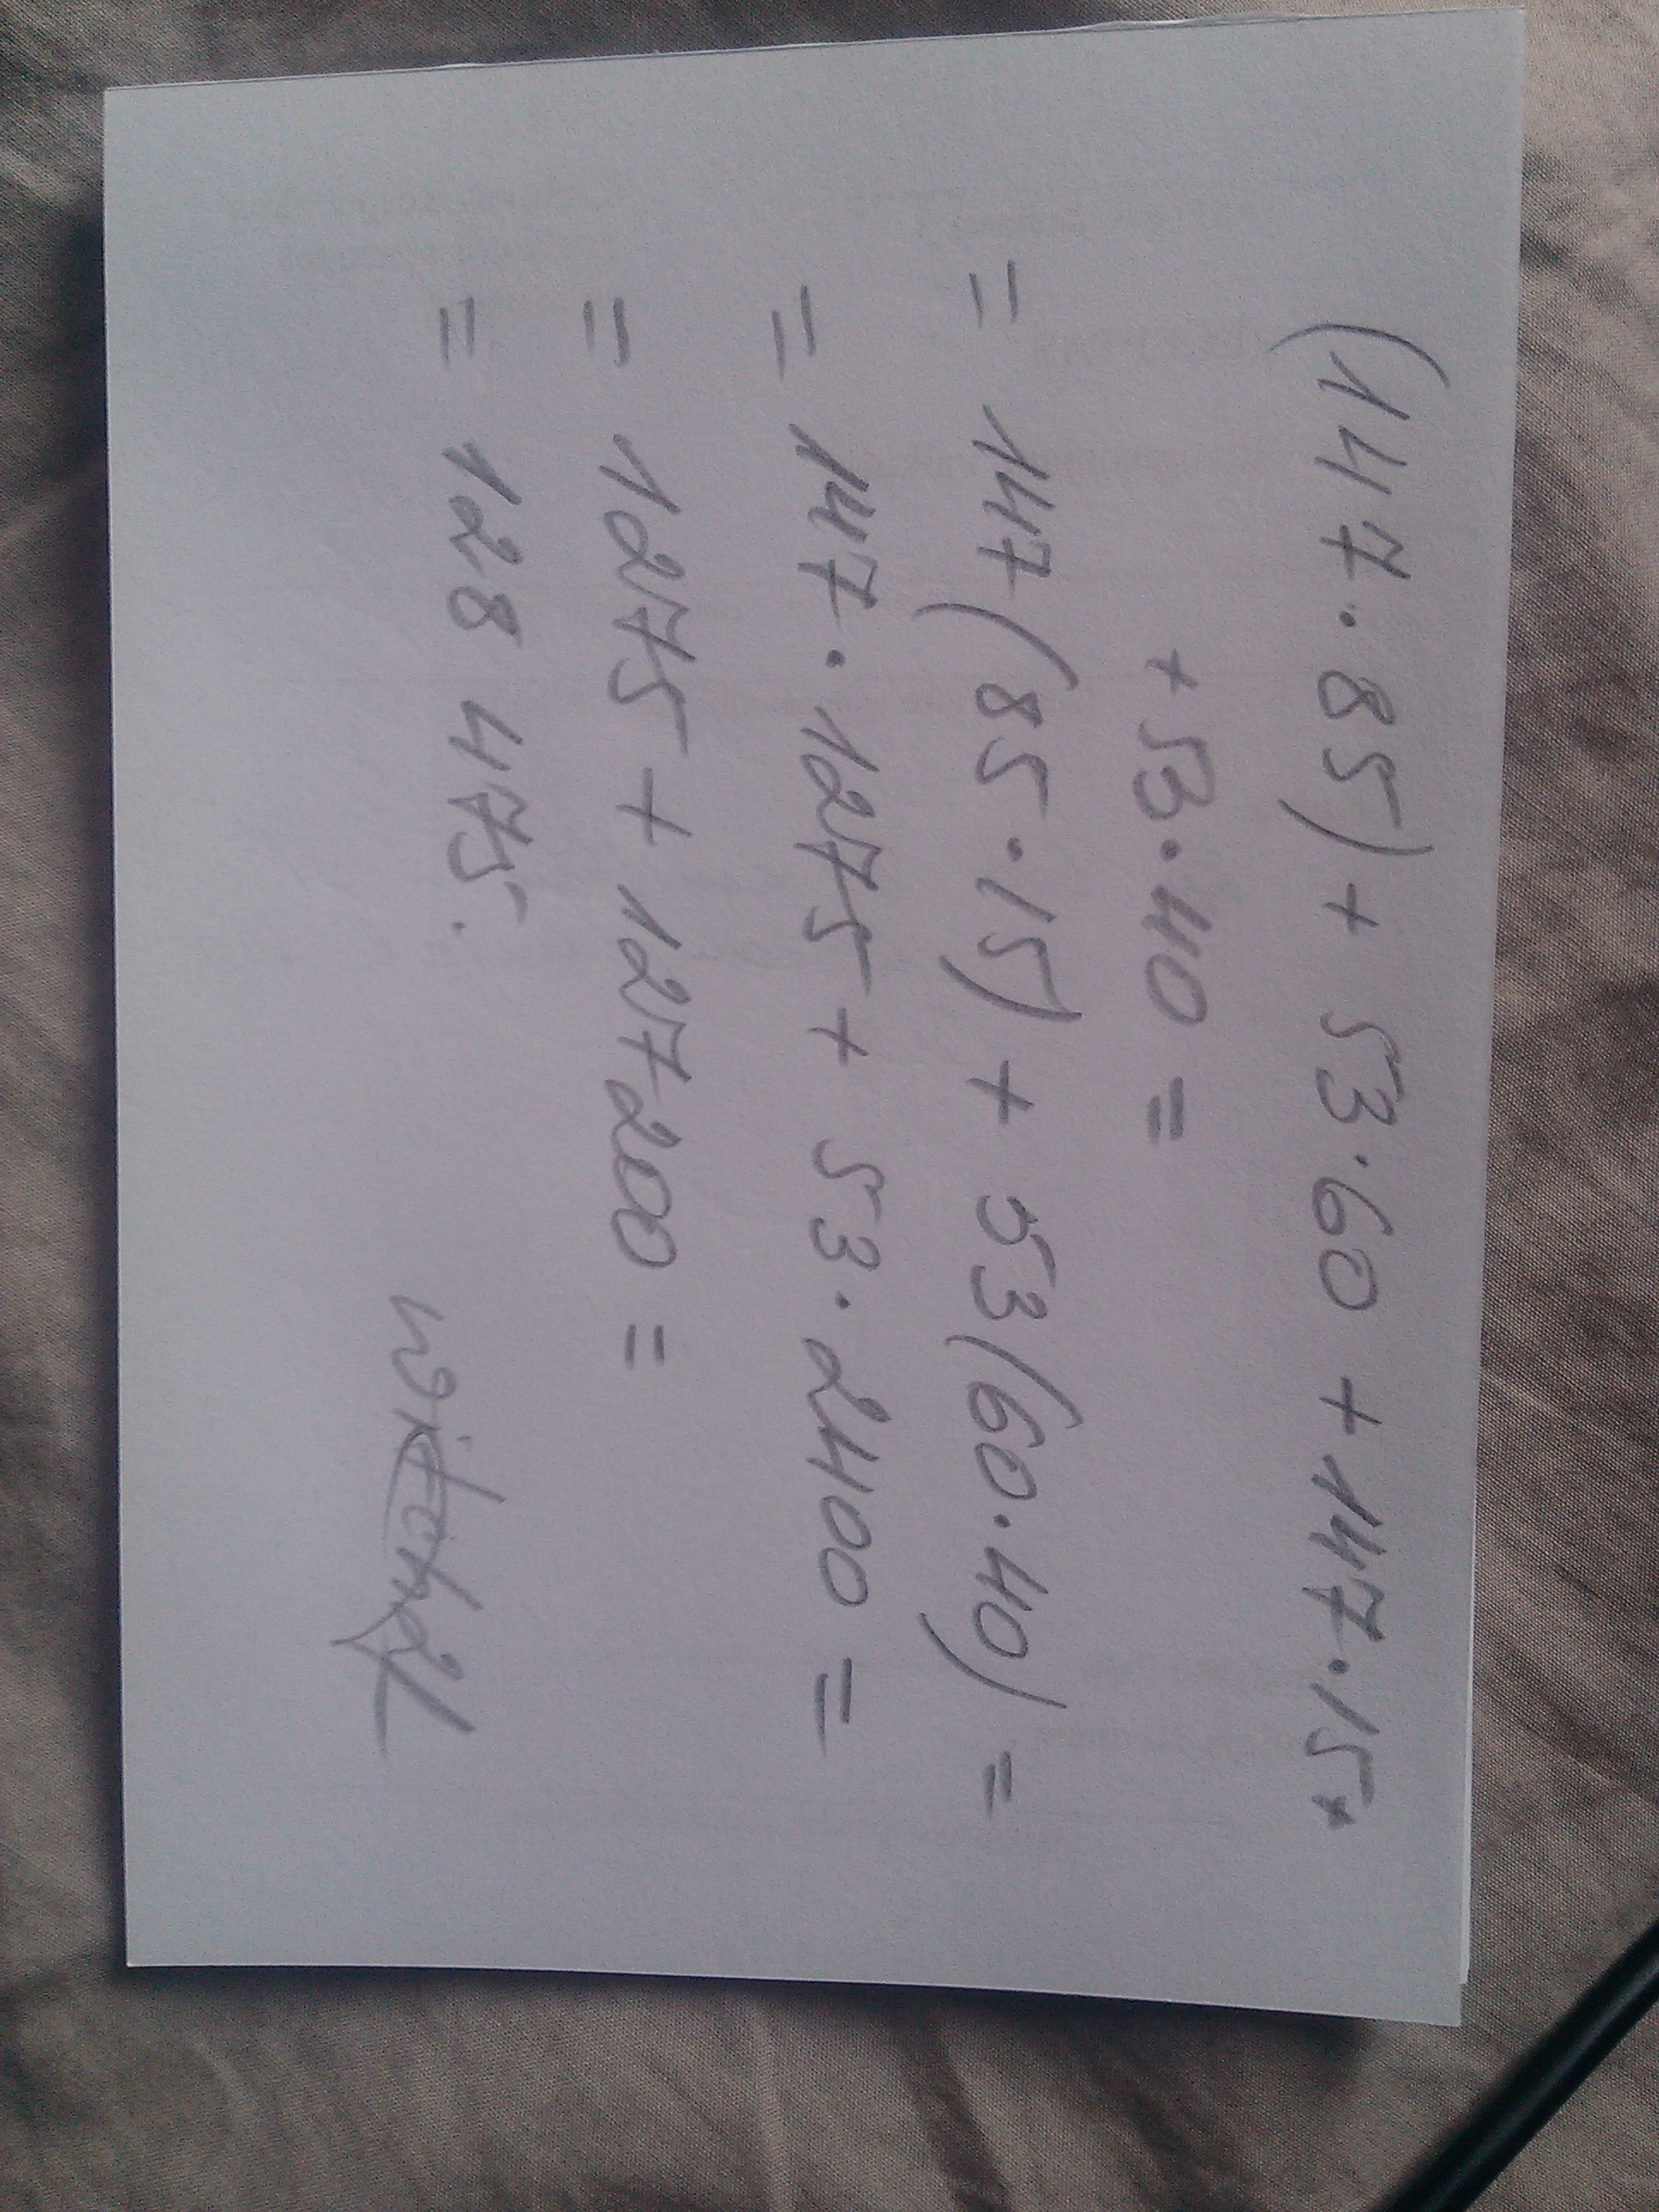 (147·85)+ 53·60 + 147·15+
+ 53·40 =
= 147(85·15) + 53(60·40) =
= 147·1275 + 53·2400 =
= 1275 + 127200 =
= 128 475.